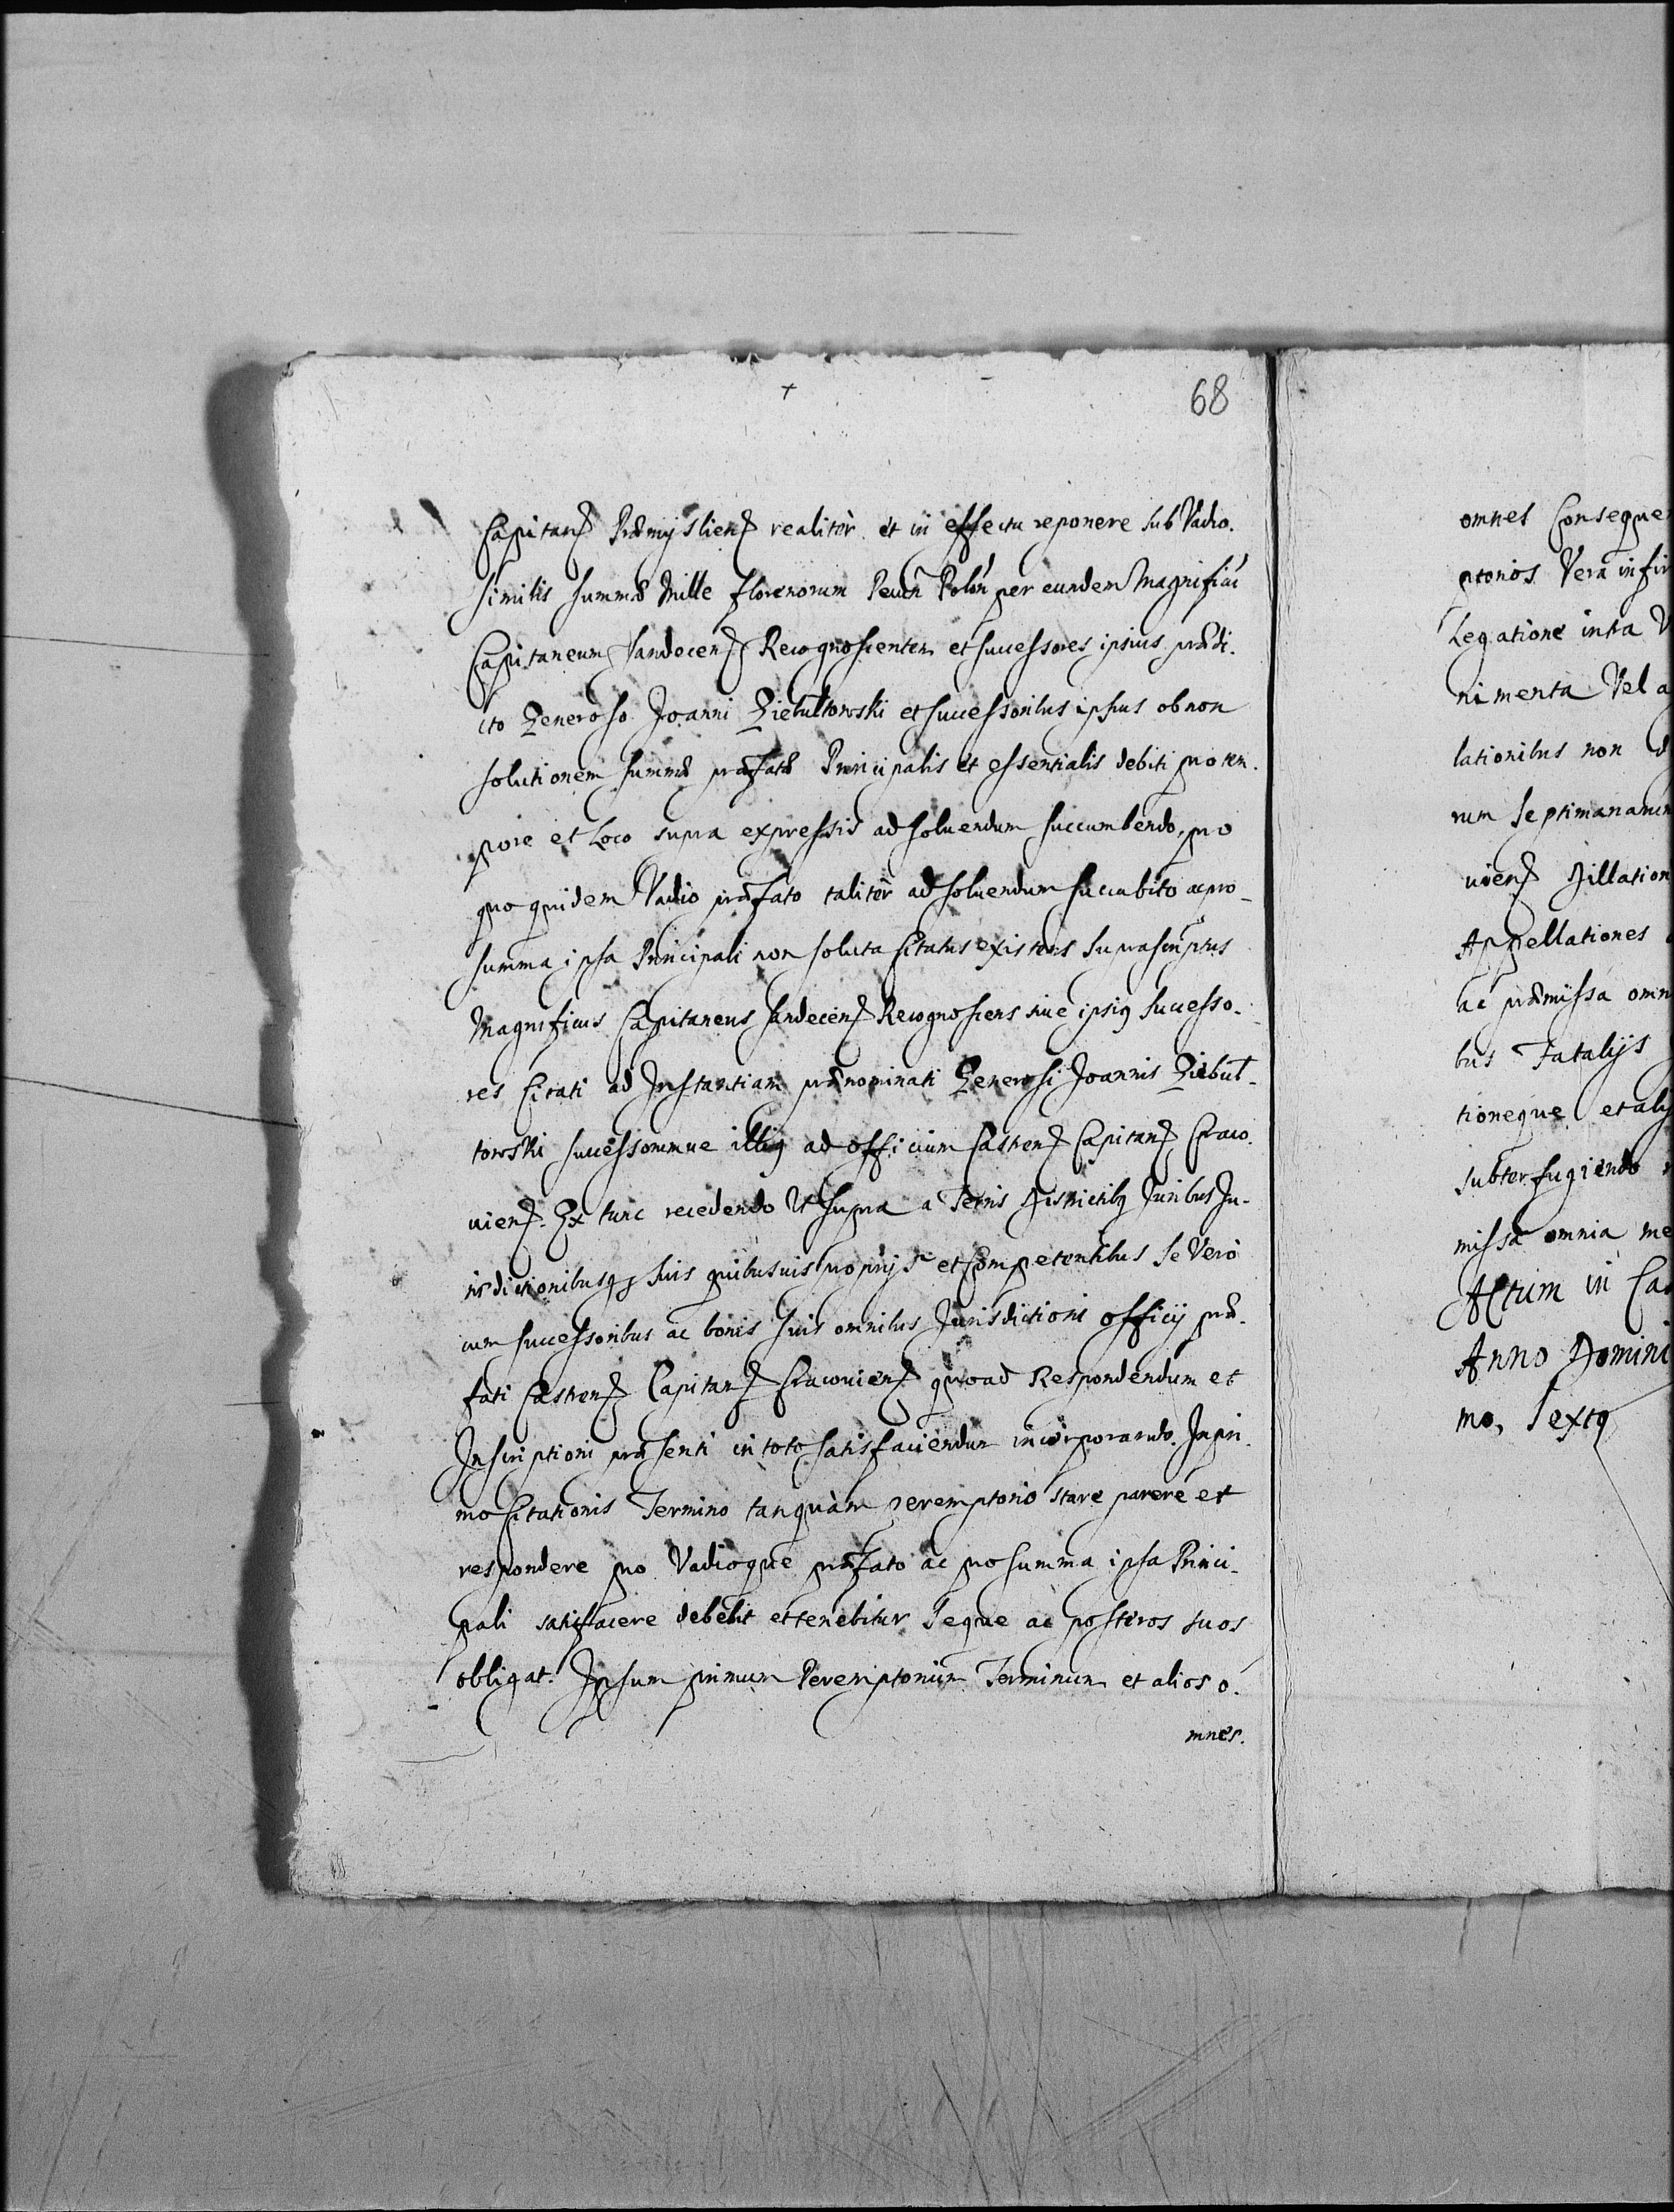 68
Capitan Præmyslien realiter et in effectu reponere sub Vadio
similis summæ Mille florenorum Pecun Polon per eundem Magnificũ
Capitaneum Sandecen Recognoscentem et successores ipsius prædi-
cto Generoso Joanni Ziebultowski et successoribus ipsius ob non
solutionem summæ præfatæ Principalis et essentialis debiti pro tem-
pore et Loco supra expressis ad soluendum succumbendo, pro
quo quidem Vadio præfato taliter ad soluendum succubito ac pro
summa ipsa Principali non soluta Citatus existens Suprascriptus
Magnificus Capitaneus Sandecen Recognoscens siue ipsiq Successo-
res Citati ad Instantiam prænominati Generosi Joannis Ziebul-
towski successorumue illiq ad officium Castren Capitan Craco-
uien. Ex tunc recedendo Vt supra a Terris Districtibq Juribus Ju-
risdictionibusq suis quibusuis proprijs et Competentibus Se Vero
cum successoribus ac bonis suis omnibus Jurisdictioni officij præ-
fati Castren Capitan Cracouien quoad Respondendum et
Inscriptioni præsenti in toto satisfaciendum incorporando. In pri-
mo Citationis Termino tanquàm peremptorio stare parere et
respondere pro Vadioque præfato ac pro summa ipsa Princi-
pali satisfacere debebit et tenebitur Seque ac posteros suos
obligat. Ipsum primum Peremptorium Terminum et alios o-
mnes.
omnes Conseque
ptorios Vera infir
Legatione intra V
nimenta Vel a
lationibus non d
rum Septimanarum
uien Dillation
Appellationes
ac præmissa omn
bus Fatalijs
tioneque et alij
subterfugiendo
missa omnia me
Actum in Ca
Anno Domini
mo, Sexto